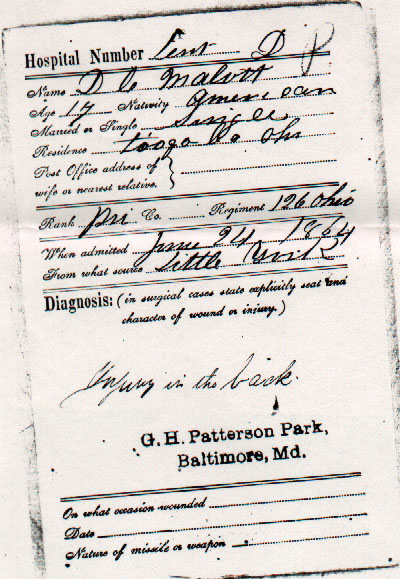 Hospital Number Sent D
Name D C Malott
Age 17 Nativity American
Married or Single Single
Residence Co Ohi
Post Office address of
wife or nearest relative.
Rank Pri Co. Regiment 126 Ohio
When admitted June 24 1864
From what source Little
Diagnosis: (in surgical cases state explicitly seat and
character of wound or injury.)
Injury in the back.
G. H. Patterson Park,
Baltimore, Md.
On what occasion wounded
Date
Nature of missile or weapon